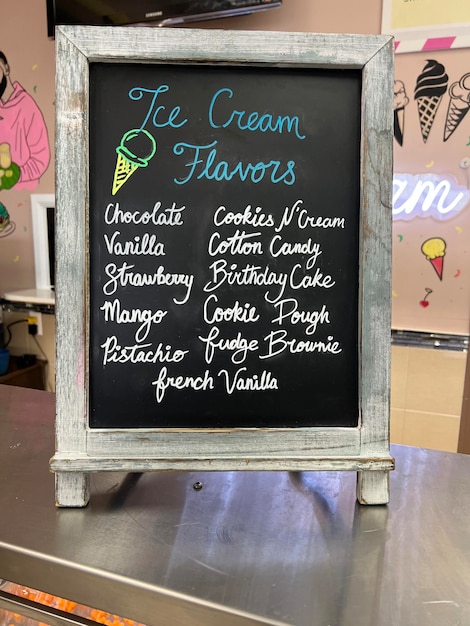 Ice Cream
Flavors
Chocolate
Vanilla
Strawberry
Mango
Pistachio
Cookies N' Cream
Cotton Candy
Birthday Cake
Cookie Dough
fudge Brownie
french Vanilla
am